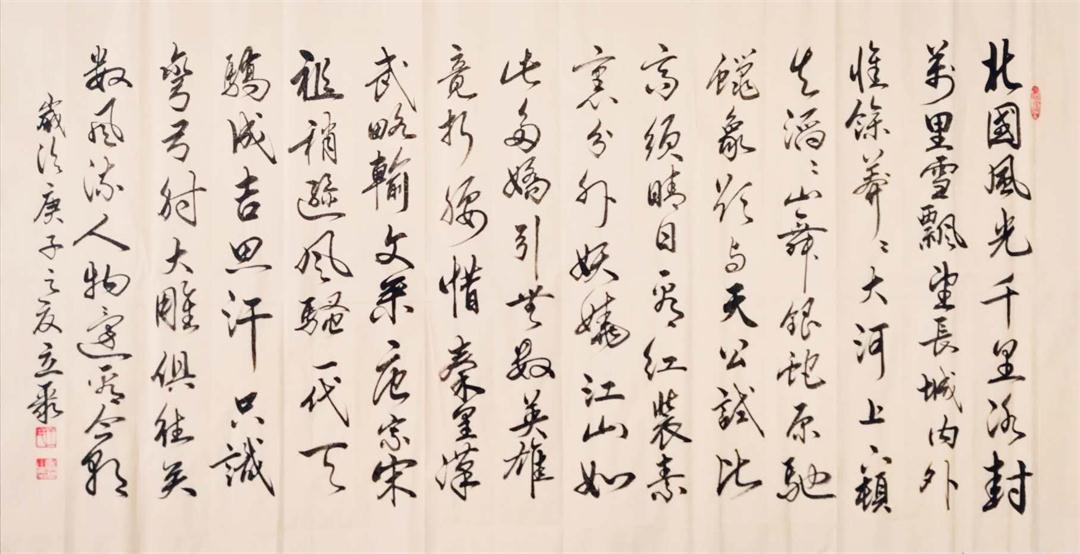 北國風光千里冰封
萬里雪飄望長城内外
惟餘莽〻大河上下頓
失滔〻山舞銀蛇原馳
蠟象欲与天公試比
高須晴日看紅裝素
裹分外妖嬈江山如
此多嬌引無数英雄
竟折腰惜秦皇漢
武略輸文采唐宗宋
祖稍遜风騷一代天
驕成吉思汗只識
彎弓射大雕俱往矣
数风流人物還看今朝
歲次庚子之夏立